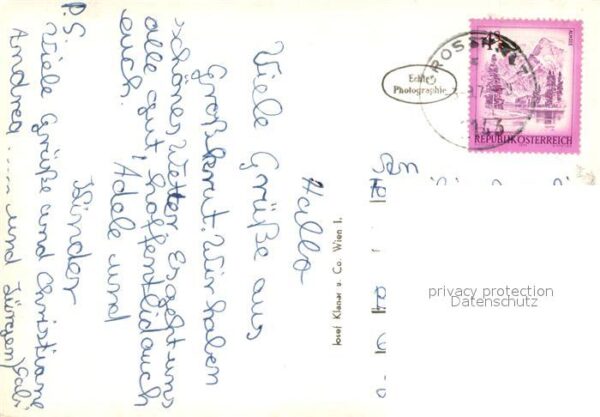 Hallo
Viele Grüße aus
Großkrut. Wir haben
schönes Wetter. Es geht uns
alle gut, hoffentlich auch
euch.
Adele und
Kinder
P.S.
Viele Grüße und Christiane
Andrea ..... und Jürgen, Gabi
Echte
Photographie
Josef Klaner u. Co. Wien I.
ALMSEE
REPUBLIK ÖSTERREICH
2143
privacy protection
Datenschutz